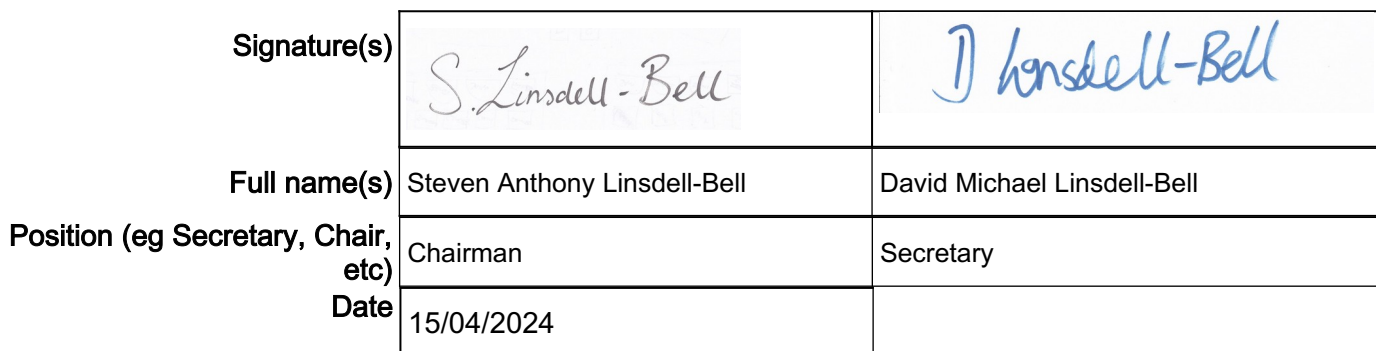 Signature(s)
S. Linsdell-Bell
D Linsdell-Bell
Full name(s) Steven Anthony Linsdell-Bell David Michael Linsdell-Bell
Position (eg Secretary, Chair,
etc) Chairman Secretary
Date 15/04/2024